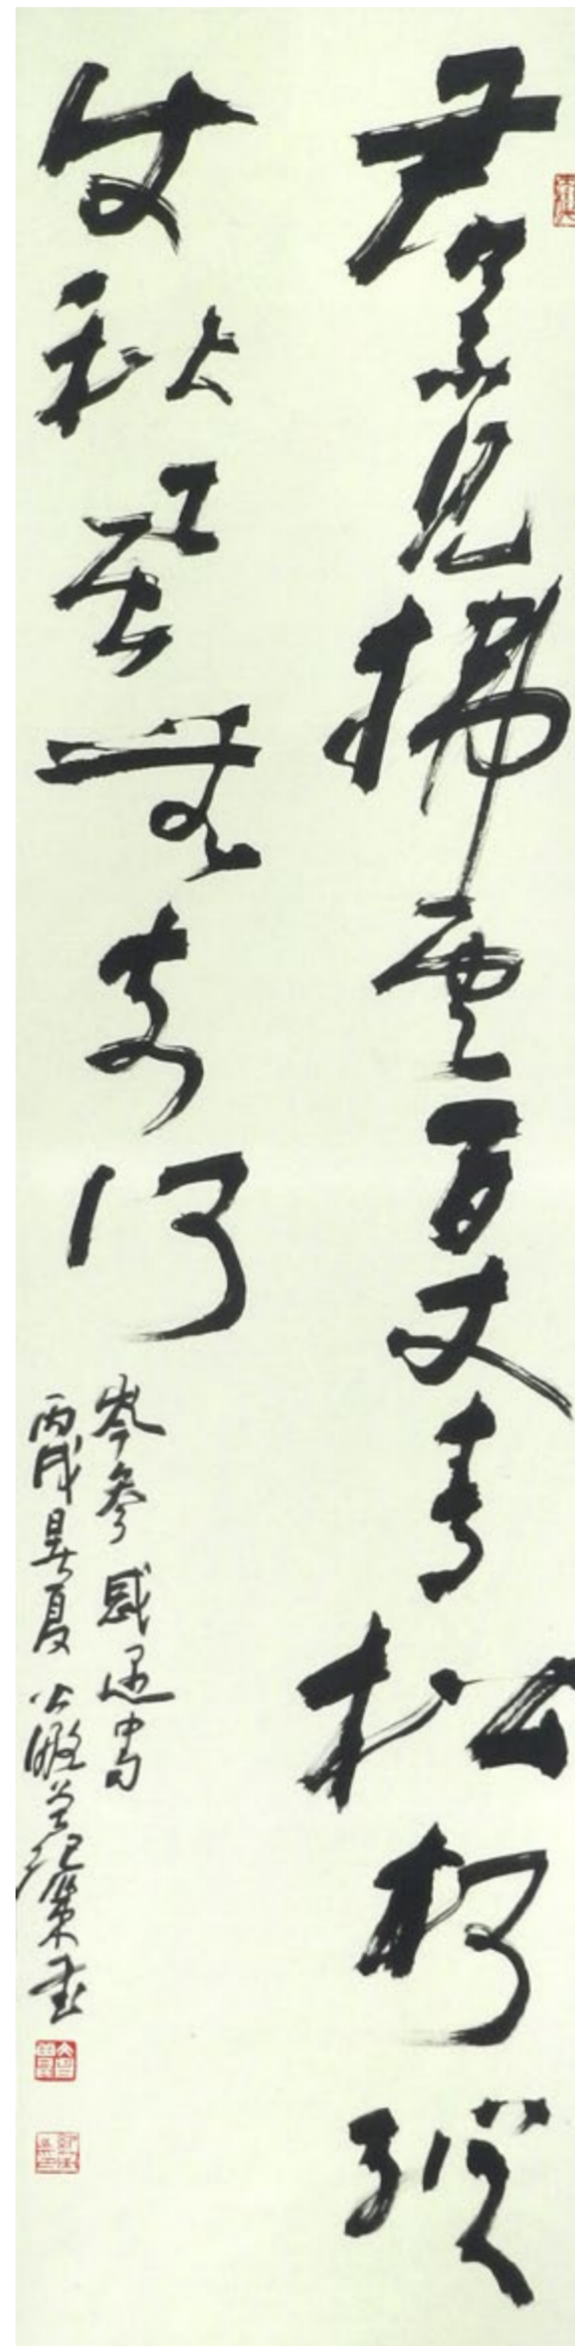 君不見拂雲百丈青松柯縱
使秋風無奈何
岑參感遇
丙戌夏書